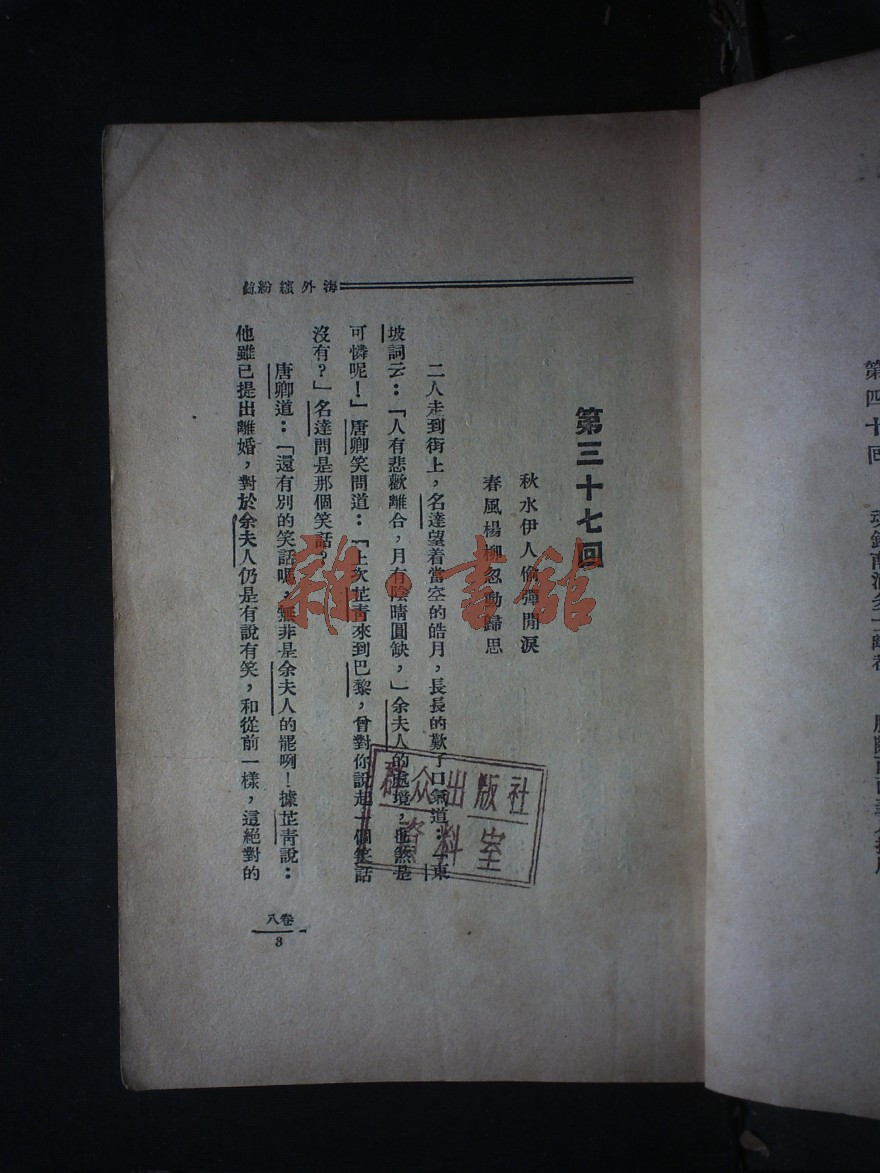 海外繽紛錄
第三十七回
秋水伊人偷彈閒淚
春風楊柳忽動歸思
二人走到街上，名達望着當空的皓月，長長的歎了口氣道：「東
坡詞云：「人有悲歡離合，月有陰晴圓缺，」余夫人的處境，也然是
可憐呢！」唐卿笑問道：「上次芷青來到巴黎，曾對你說起一個笑話
沒有？」名達問是那個笑話？
唐卿道：「還有別的笑話嗎，無非是余夫人的罷啊！據芷青說：
他雖已提出離婚，對於余夫人仍是有說有笑，和從前一樣，這絕對的
卷八
3
群众出版社
資料室
雜·書館
第四十回